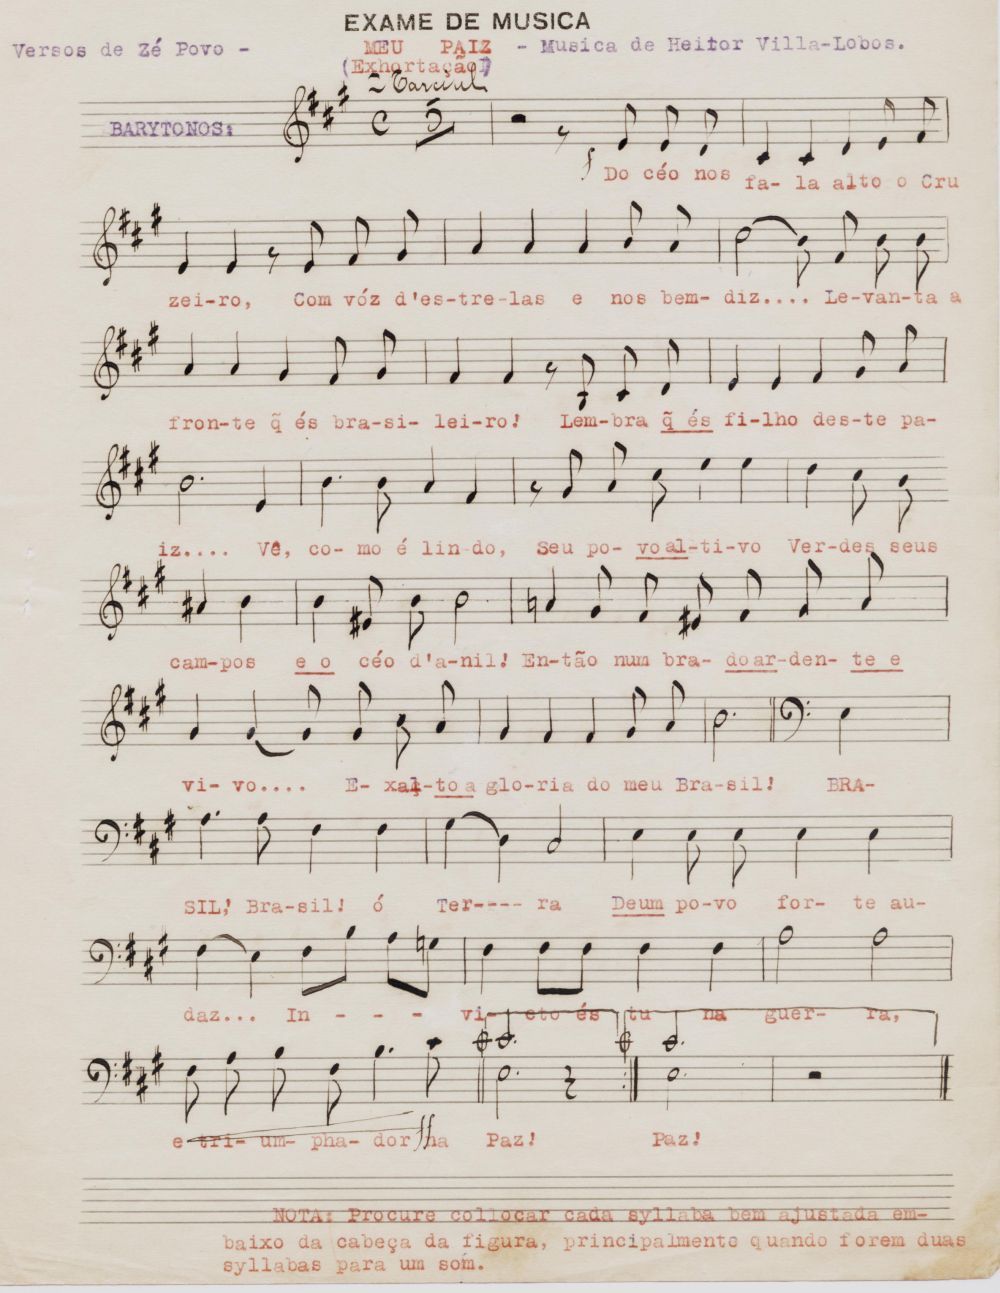 EXAME DE MUSICA
Versos de Zé Povo - MEU PAIZ - Musica de Heitor Villa-Lobos.
(Exhortação)
Marcial
BARYTONOS:
f Do céo nos fa- la alto o Cru
zei-ro, Com vóz d'es-tre-las e nos bem- diz.... Le-van-ta a
fron-te q̃ és bra-si- lei-ro! Lem-bra q̃ és fi-lho des-te pa-
iz.... Vê, co- mo é lin-do, Seu po- vo al-ti-vo Ver-des seus
cam-pos e o céo d'a-nil! En-tão num bra- do ar-den- te e
vi- vo.... E- xal-to a glo-ria do meu Bra-sil! BRA-
SIL! Bra-sil! ó Ter---- ra Deum po-vo for- te au-
daz... In - - - vi- cto és tu na guer- ra,
e tri- um- pha- dor ff na Paz! Paz!
NOTA: Procure collocar cada syllaba bem ajustada em-
baixo da cabeça da figura, principalmente quando forem duas
syllabas para um som.